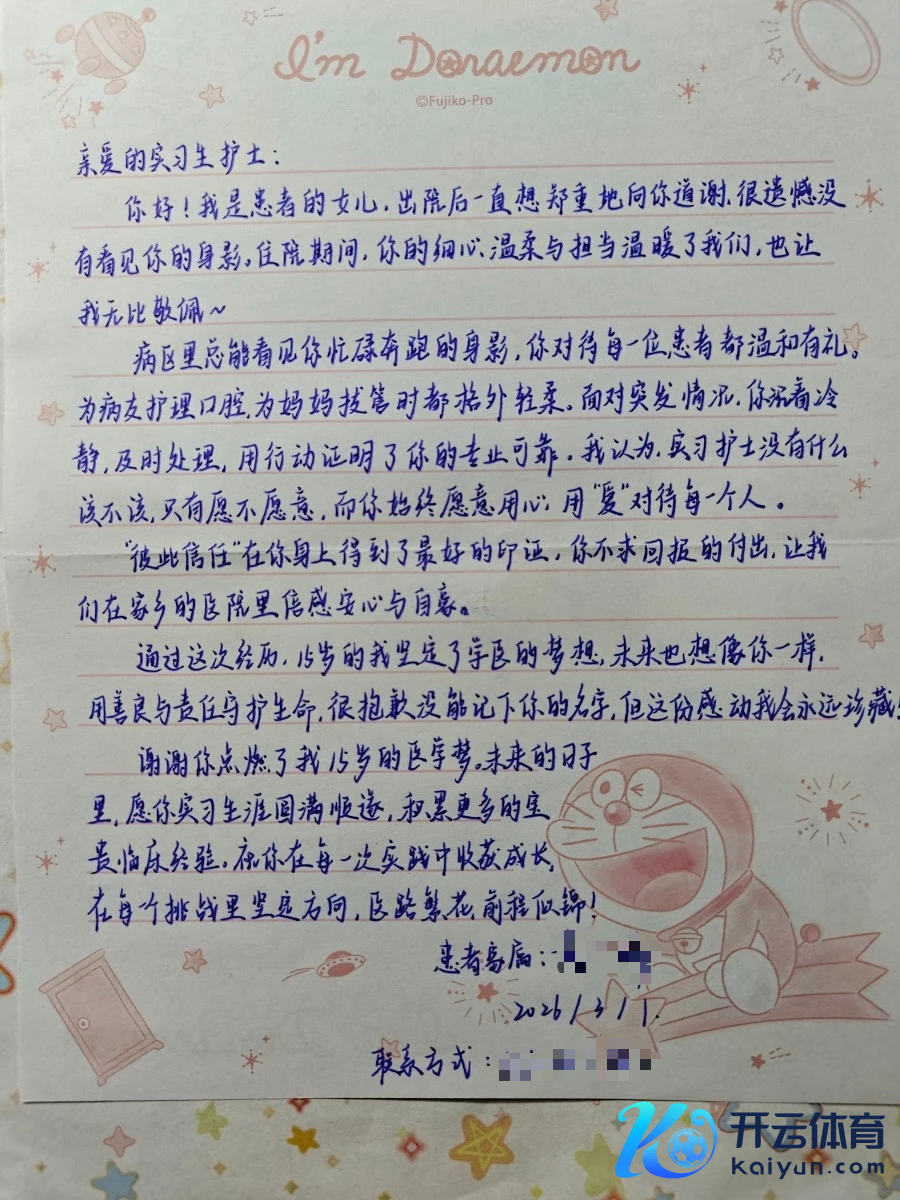 I'm Doraemon
©Fujiko-Pro
亲爱的实习生护士：
你好！我是患者的女儿，出院后一直想郑重地向你道谢，很遗憾没
有看见你的身影。住院期间，你的细心、温柔与担当温暖了我们，也让
我无比敬佩～
病区里总能看见你忙碌奔跑的身影，你对待每一位患者都温和有礼。
为病友护理口腔，为妈妈拔管时都格外轻柔。面对突发情况，你沉着冷
静，及时处理，用行动证明了你的专业可靠。我认为，实习护士没有什么
该不该，只有愿不愿意，而你始终愿意用心，用"爱"对待每一个人。
"彼此信任"在你身上得到了最好的印证，你不求回报的付出，让我
们在家乡的医院里倍感安心与自豪。
通过这次经历，15岁的我坚定了学医的梦想，未来也想像你一样，
用善良与责任守护生命，很抱歉没能记下你的名字，但这份感动我会永远珍藏！
谢谢你点燃了我15岁的医学梦。未来的日子
里，愿你实习生涯圆满顺遂，积累更多的宝
贵临床经验。祝你在每一次实践中收获成长，
在每个挑战里坚定方向，医路繁花，前程似锦！
患者家属：
2026/3/1.
联系方式：
开云体育
kaiyun.com